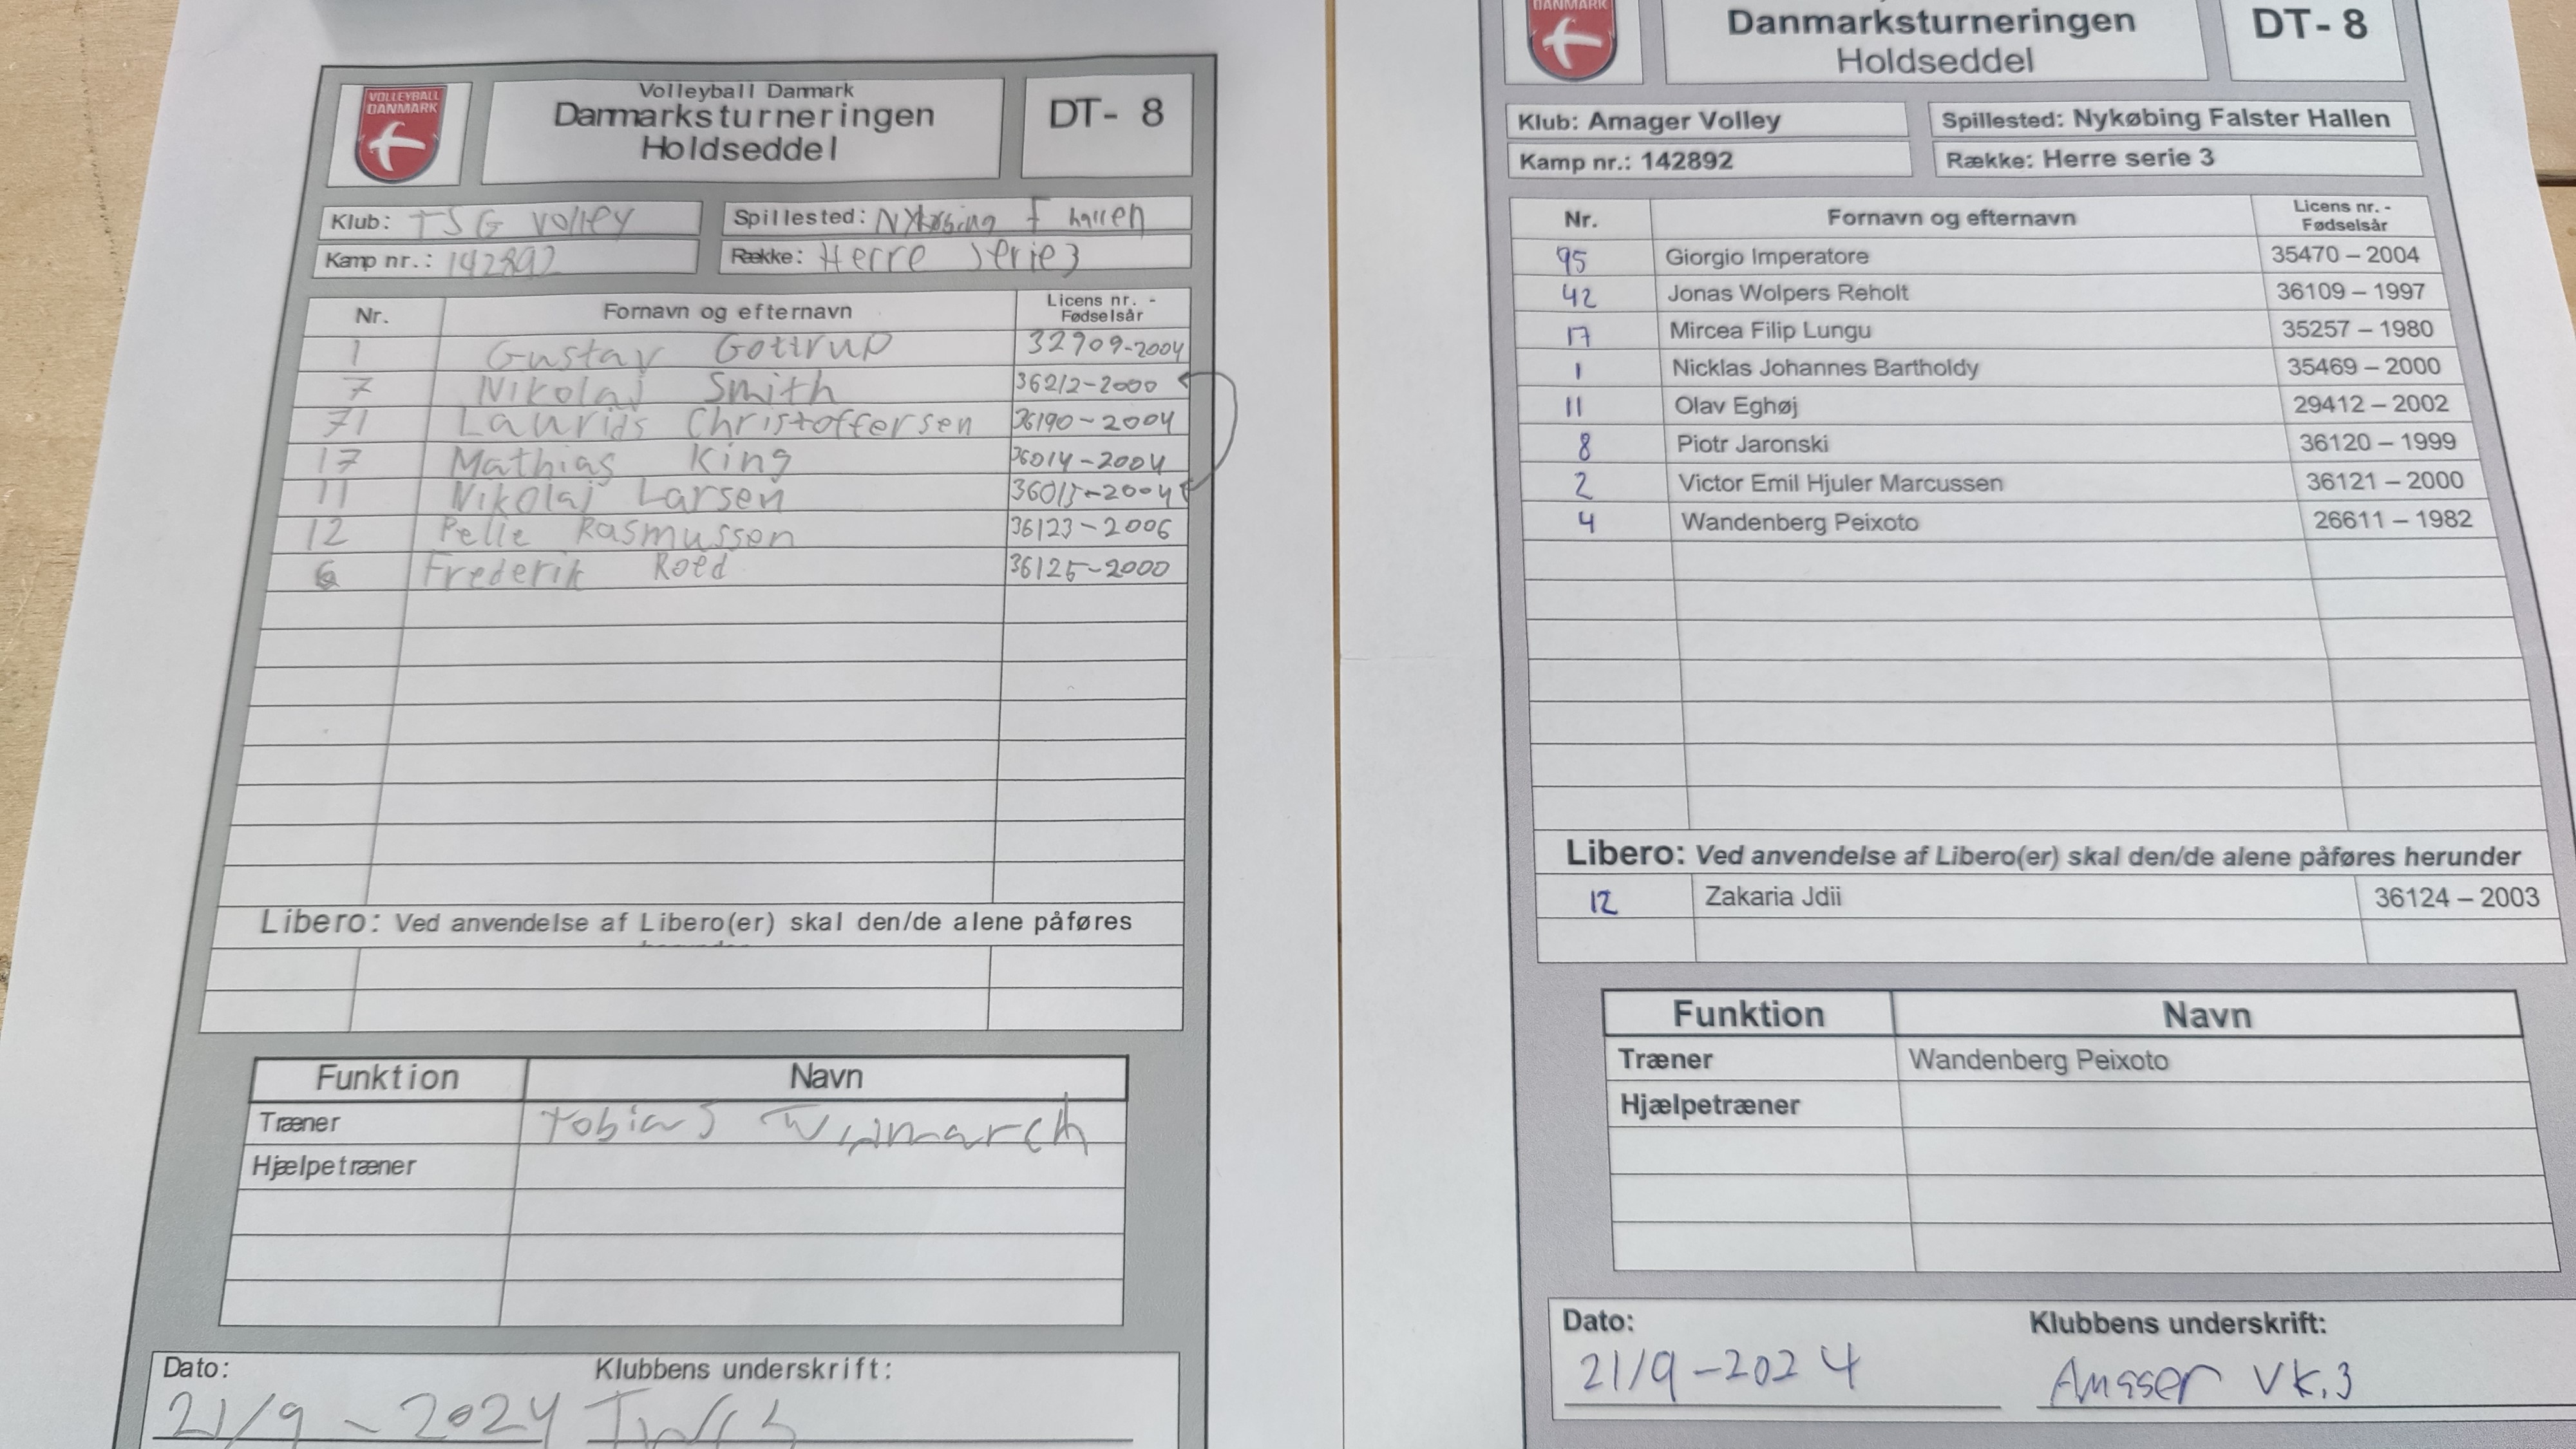 VOLLEYBALL
DANMARK
Volleyball Danmark
Danmarksturneringen
Holdseddel
DT- 8
Klub: TSG Volley
Spillested: Nykøbing F hallen
Kamp nr.: 142892
Række: Herre Serie 3
Nr. Fornavn og efternavn Licens nr. - Fødselsår
1 Gustav Gottrup 32909-2004
7 Nikolaj Smith 36212-2000
71 Laurids Christoffersen 36190-2004
17 Mathias King 36014-2004
11 Nikolaj Larsen 36015-2004
12 Pelle Rasmussen 36123-2006
6 Frederik Roed 36125-2000
Libero: Ved anvendelse af Libero(er) skal den/de alene påføres
Funktion Navn
Træner Tobias
Hjælpetræner
Dato: Klubbens underskrift:
21/9-2024
DANMARK
Danmarksturneringen
Holdseddel
DT- 8
Klub: Amager Volley
Spillested: Nykøbing Falster Hallen
Kamp nr.: 142892
Række: Herre serie 3
Nr. Fornavn og efternavn Licens nr. - Fødselsår
95 Giorgio Imperatore 35470 – 2004
42 Jonas Wolpers Reholt 36109 – 1997
17 Mircea Filip Lungu 35257 – 1980
1 Nicklas Johannes Bartholdy 35469 – 2000
11 Olav Eghøj 29412 – 2002
8 Piotr Jaronski 36120 – 1999
2 Victor Emil Hjuler Marcussen 36121 – 2000
4 Wandenberg Peixoto 26611 – 1982
Libero: Ved anvendelse af Libero(er) skal den/de alene påføres herunder
12 Zakaria Jdii 36124 – 2003
Funktion Navn
Træner Wandenberg Peixoto
Hjælpetræner
Dato: Klubbens underskrift:
21/9-2024 Amager VK.3